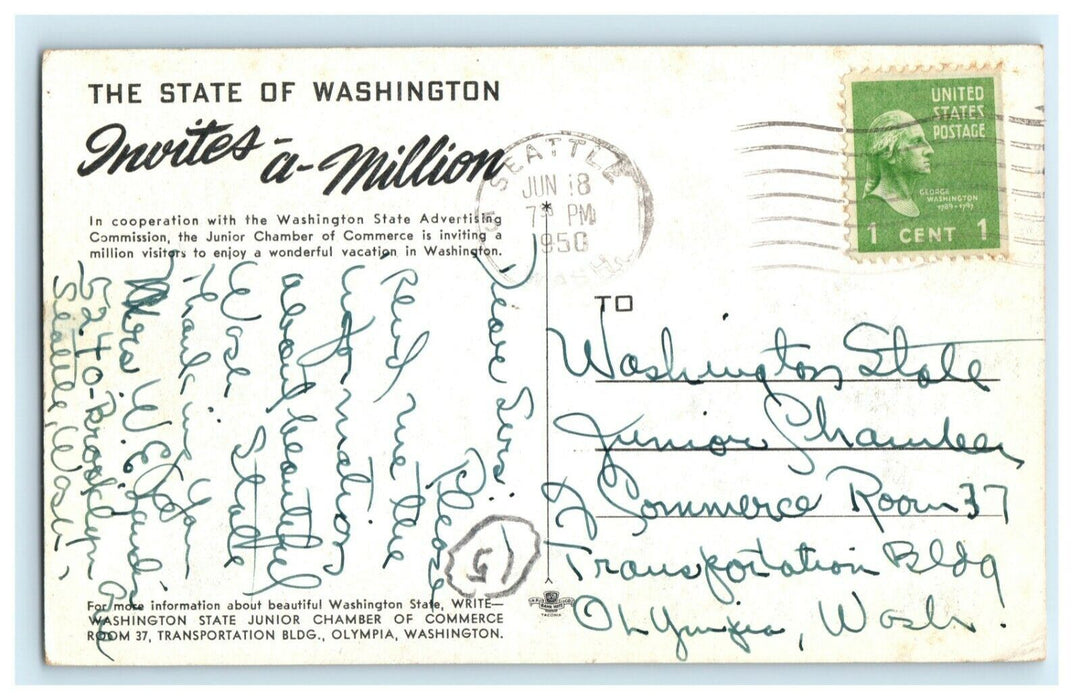 THE STATE OF WASHINGTON
Invites-a-Million
In cooperation with the Washington State Advertising
Commission, the Junior Chamber of Commerce is inviting a
million visitors to enjoy a wonderful vacation in Washington.
SEATTLE
JUN 18
7 PM
1950
UNITED
STATES
POSTAGE
GEORGE
WASHINGTON
1789-1797
1 CENT 1
Dear Sirs: Please
send me the
information
about beautiful
Wash. State
Thank-ing You
Mrs W. E.
5240-Brooklyn Ave
Seattle, Wash.
15
TO
Washington State
Junior Chamber
of Commerce Room 37
Transportation Bldg
Olympia, Wash.
For more information about beautiful Washington State, WRITE—
WASHINGTON STATE JUNIOR CHAMBER OF COMMERCE
ROOM 37, TRANSPORTATION BLDG., OLYMPIA, WASHINGTON.
TACOMA